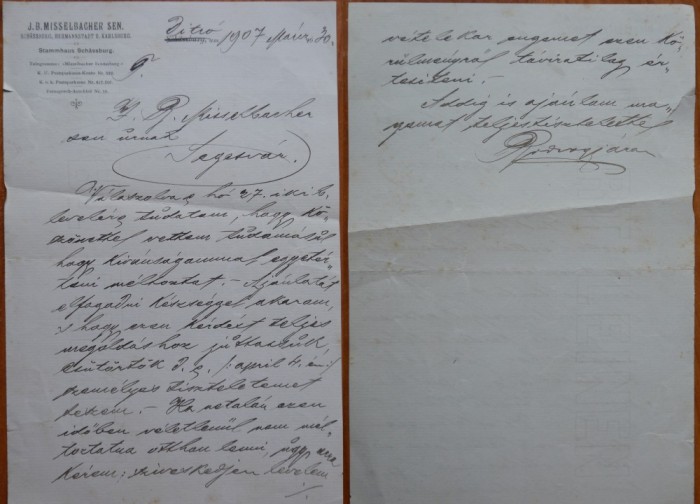 J. B. MISSELBACHER SEN.
SCHÄSSBURG, HERMANNSTADT U. KARLSBURG.
Stammhaus Schässburg.
Ditró 1907 März 30.
J. B. Misselbacher
sen úrnak
Segesvár.
Válaszolva hó 27. iki b.
levelére tudatom, hogy kö-
szönettel vettem tudomásul
hogy kivánságommal egyetér-
teni méltóztat. – Ajánlatát
elfogadni készséggel akarom,
s hogy ezen kérdést teljes
megoldáshoz juttassuk,
csütörtök d. e. /: april 4. én :/
személyes tiszteletemet
teszem. – Ha netalán ezen
időben véletlenül nem mél-
tóztatna otthon lenni, úgy arra
kérem: szíveskedjen levelem
vételekor engemet ezen kö-
rülményról táviratilag ér-
tesíteni.
Addig is ajánlom ma-
gamat teljes tisztelettel